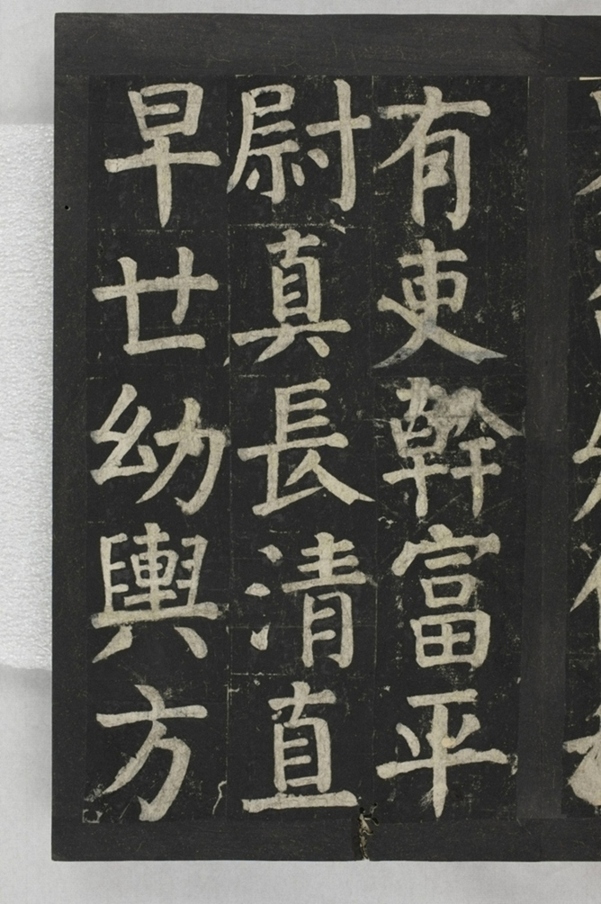 有吏幹富平
尉真長清直
早世幼輿方